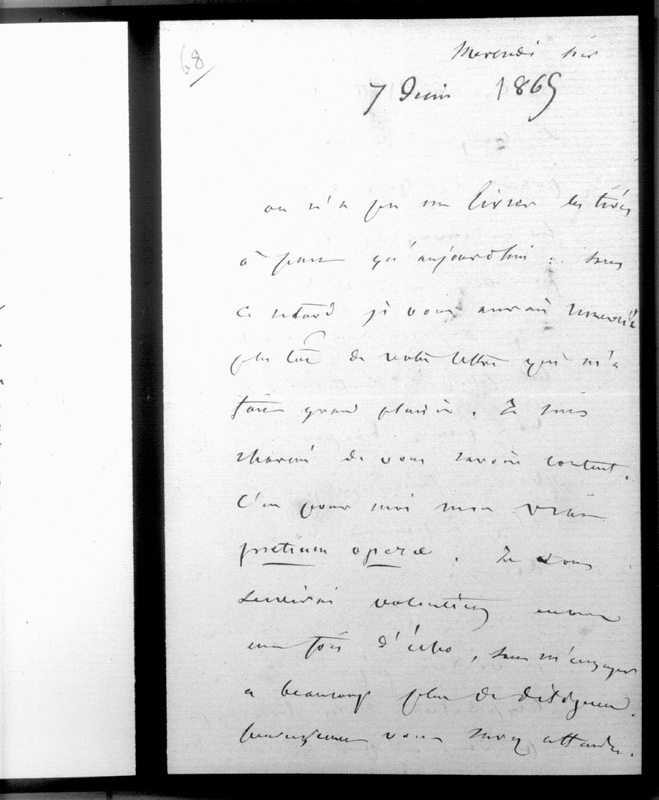 68
Mercredi soir
7 Juin 1865
on n'a pu me livrer les tirés
à part qu'aujourd'hui : sans
ce retard je vous aurais remercié
plus tôt de votre lettre qui m'a
fait grand plaisir. Je suis
charmé de vous savoir content.
C'est pour moi mon vrai
pretium operæ. Je vous
servirai volontiers encore
une fois d'écho, sans m'engager
à beaucoup plus de
vous attendre.